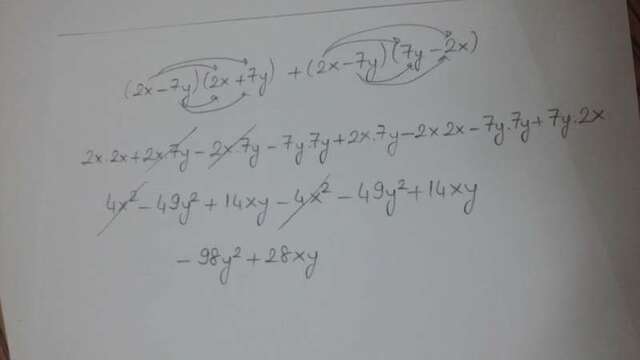 (2x-7y)(2x+7y) + (2x-7y)(7y-2x)
2x.2x+2x.7y-2x.7y-7y.7y+2x.7y-2x2x-7y.7y+7y.2x
4x²-49y²+14xy-4x²-49y²+14xy
-98y²+28xy